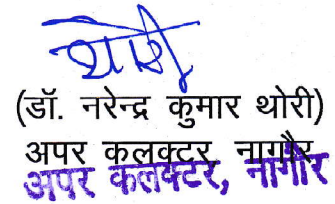 थोरी
(डॉ. नरेन्द्र कुमार थोरी)
अपर कलक्टर, नागौर
अपर कलक्टर, नागौर